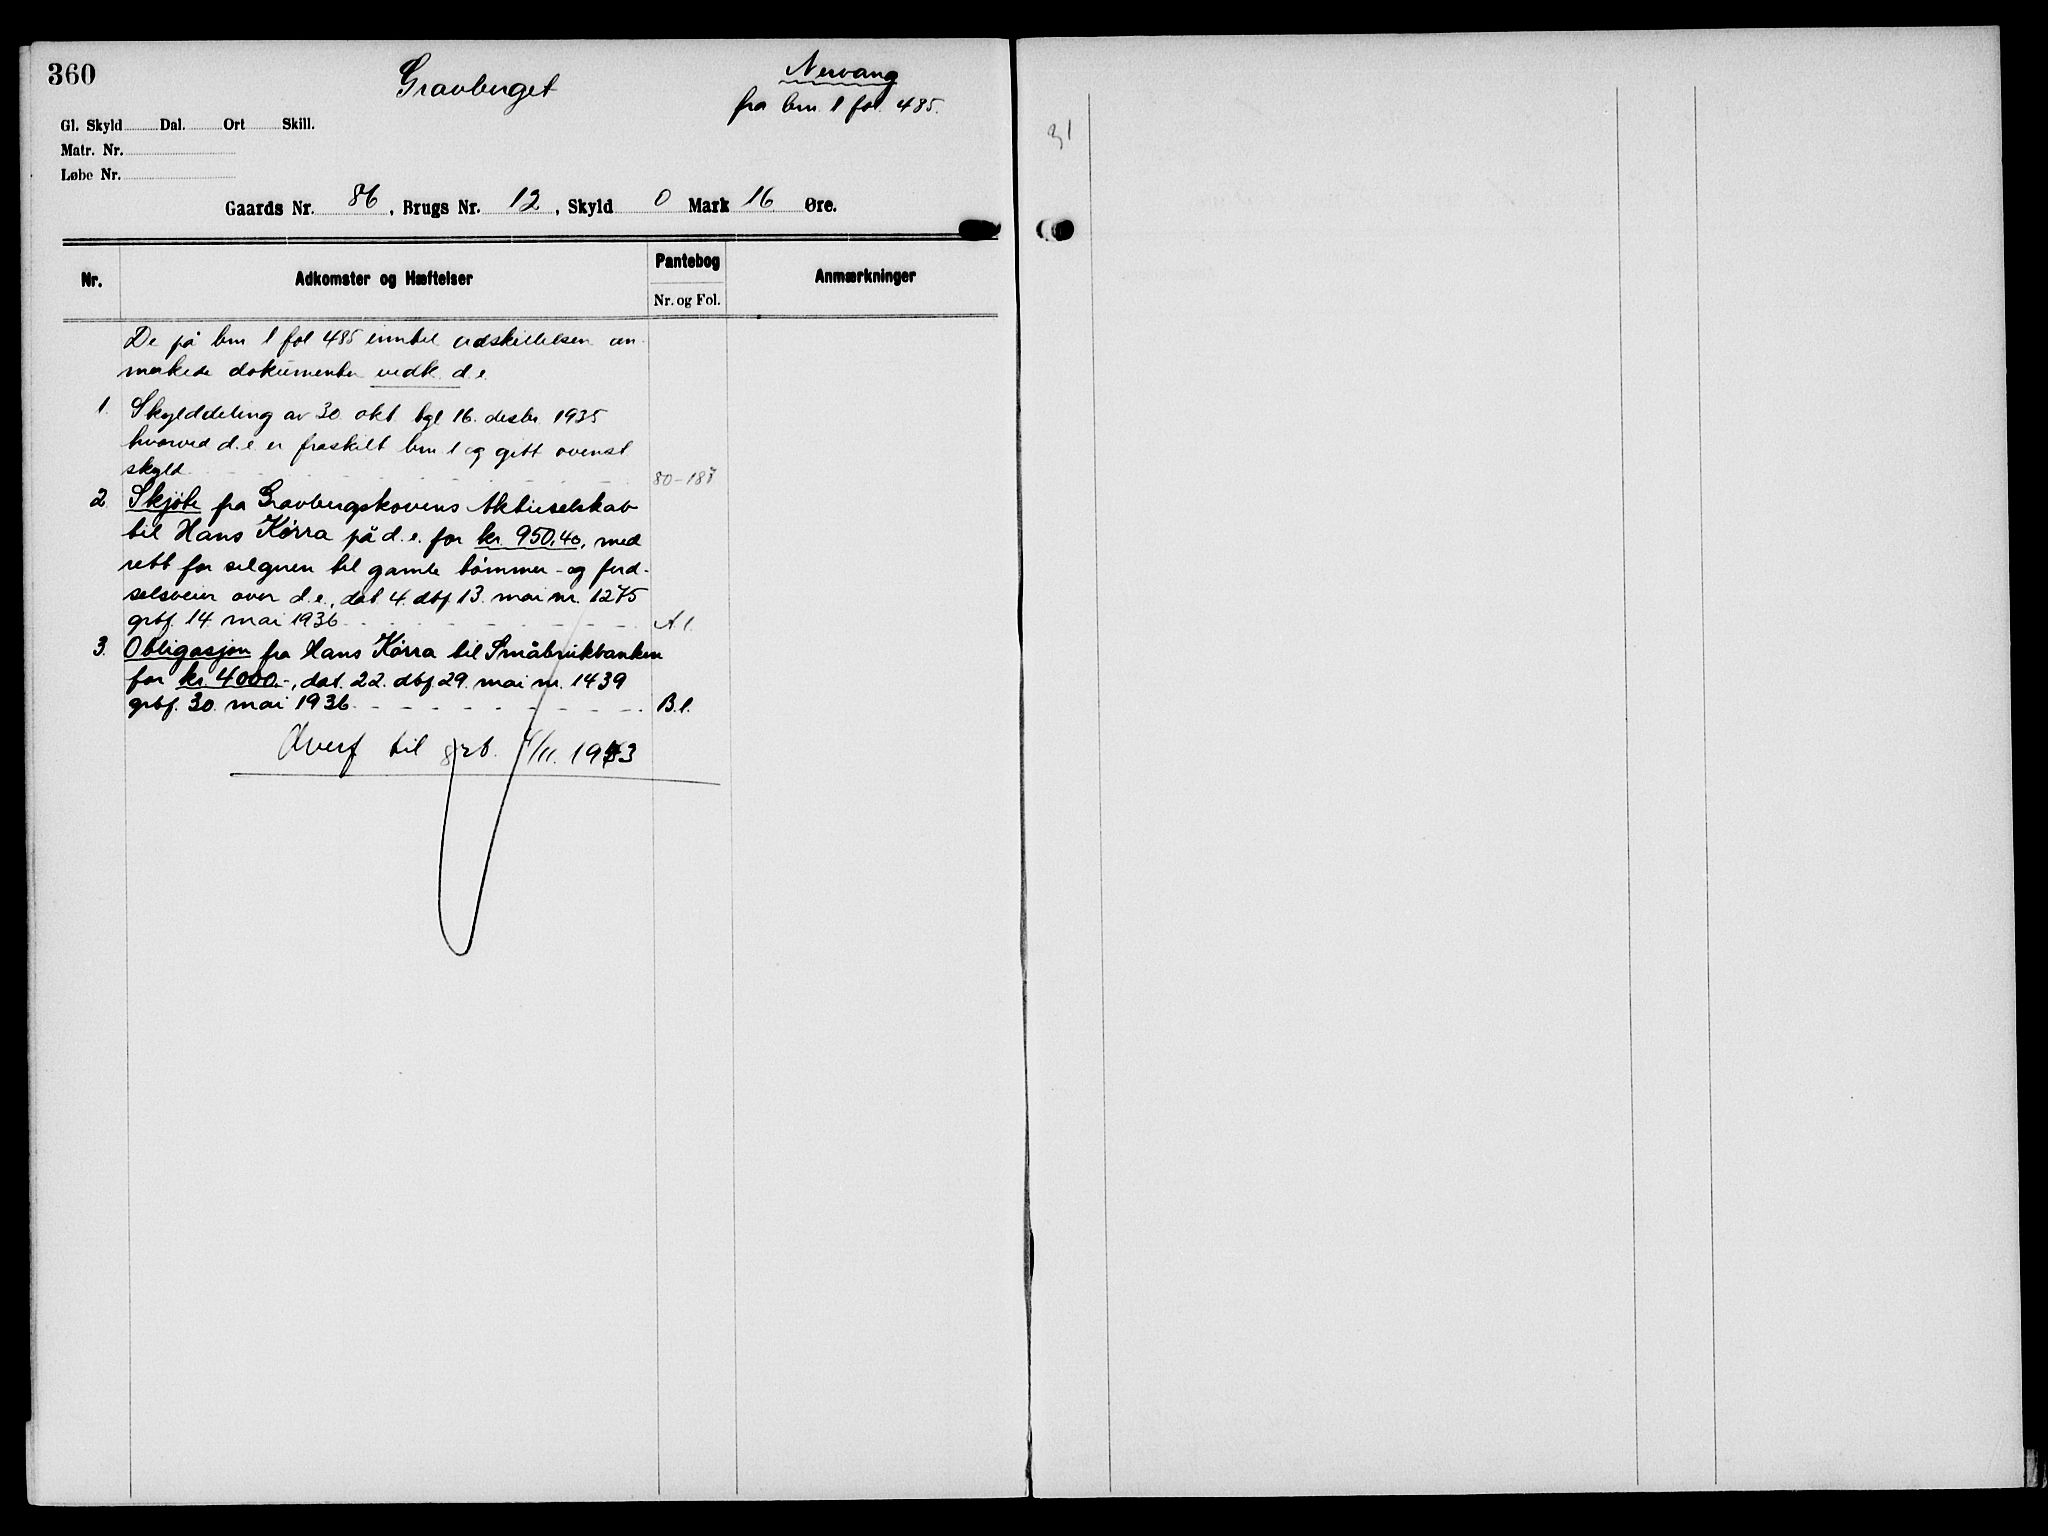 360
Gravberget
Nervang
fra bnr. 1 fol. 485.
Gl. Skyld Dal. Ort Skill.
Matr. Nr.
Løbe Nr.
Gaards Nr. 86, Brugs Nr. 12, Skyld 0 Mark 16 Øre.
Nr. Adkomster og Hæftelser Pantebog Anmærkninger
Nr. og Fol.
De på bnr 1 fol 485 inntil utskillelsen an-
merkede dokumenter vedk. d.e.
1. Skylddeling av 30 okt. tgl 16. desbr 1935
hvorved d.e. er fraskilt bnr 1 og gitt ovenst
skyld 80-187
2 Skjøte fra Gravbergskovens Aktieselskab
til Hans Kørra på d.e. for kr. 950,40, med
rett for selgeren til gamle tømmer- og ferd-
selsveier over d.e., dat. 4. dbf 13. mai nr. 1275
grbf. 14 mai 1936 A.1.
3. Obligasjon fra Hans Kørra til Småbrukbanken
for kr. 4000.-, dat. 22. dbf 29. mai nr. 1439
grbf. 30. mai 1936 B.1.
Overf til grb. /11. 1953
31